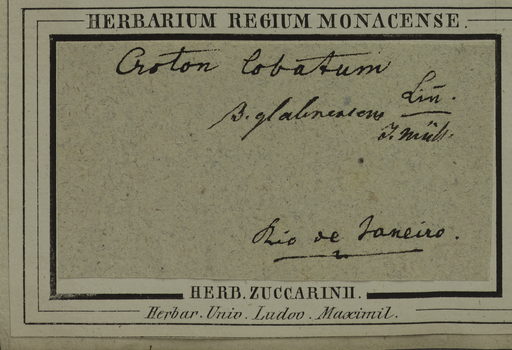 HERBARIUM REGIUM MONACENSE.
Croton lobatum
Lin̄.
β. glabrescens
J. Müll.
Rio de Janeiro.
HERB. ZUCCARINII.
Herbar. Univ. Ludov. Maximil.